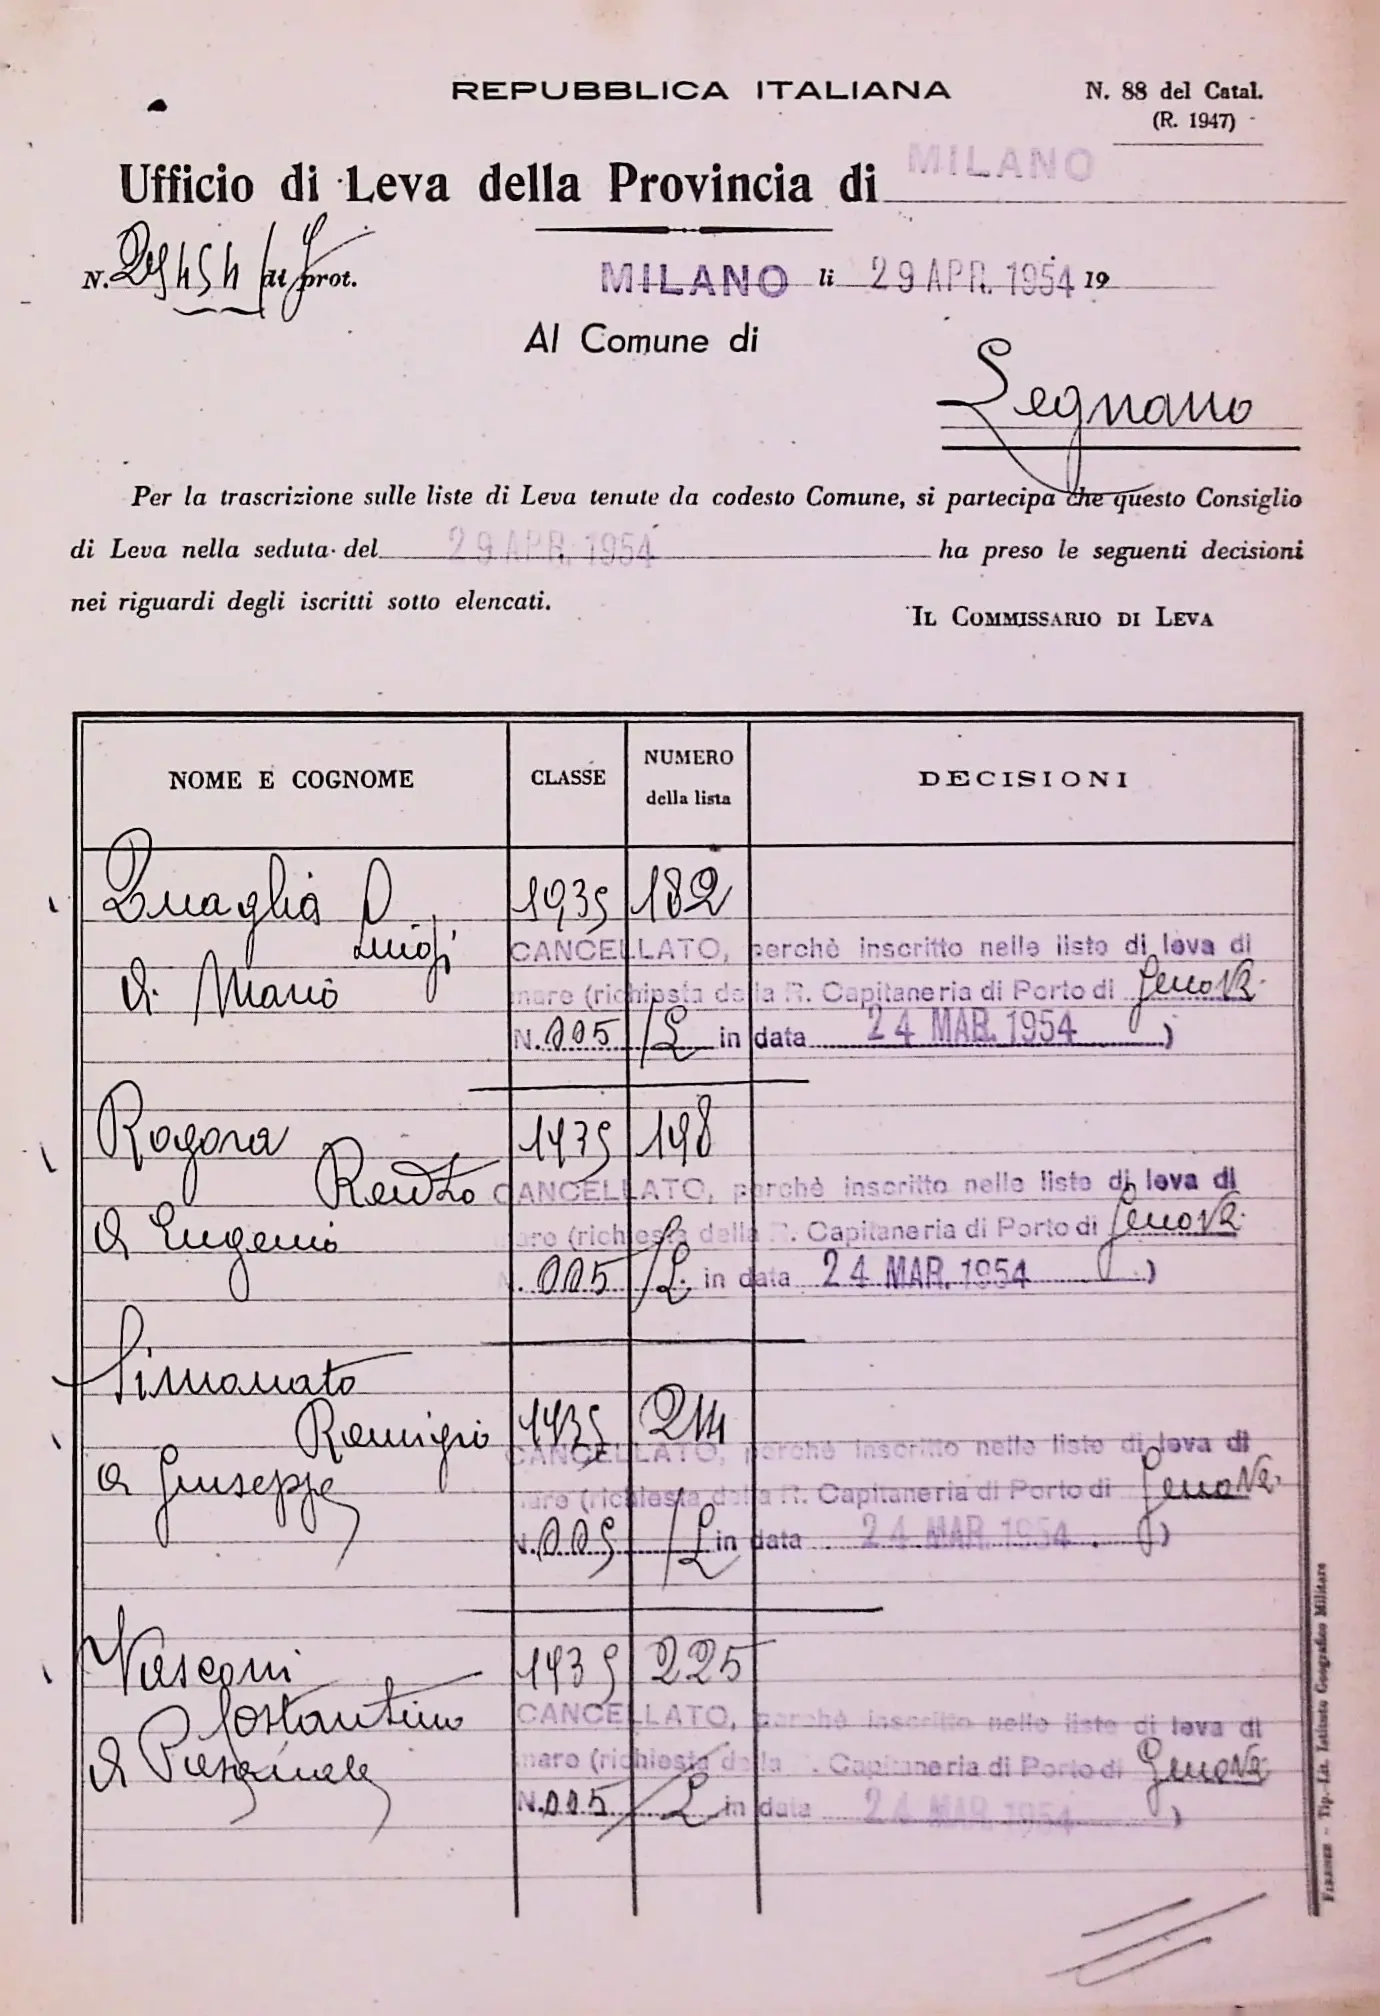 REPUBBLICA ITALIANA
N. 88 del Catal.
(R. 1947)
Ufficio di Leva della Provincia di MILANO
N. di prot.
MILANO li 29 APR. 1954 19
Al Comune di
Legnano
Per la trascrizione sulle liste di Leva tenute da codesto Comune, si partecipa che questo Consiglio
di Leva nella seduta del 29 APR. 1954 ha preso le seguenti decisioni
nei riguardi degli iscritti sotto elencati.
IL COMMISSARIO DI LEVA
NOME E COGNOME CLASSE NUMERO della lista DECISIONI
Quaglia 1935 182
Luigi
di Mario
CANCELLATO, perchè inscritto nelle liste di leva di
mare (richiesta della R. Capitaneria di Porto di Genova
N. 005/L in data 24 MAR. 1954 )
Rogora 1935 198
Renzo
di Eugenio
CANCELLATO, perchè inscritto nelle liste di leva di
mare (richiesta della R. Capitaneria di Porto di Genova
N. 005/L in data 24 MAR. 1954 )
Simonato
Remigio 1935 214
di Giuseppe
CANCELLATO, perchè inscritto nelle liste di leva di
mare (richiesta della R. Capitaneria di Porto di Genova
N. 005/L in data 24 MAR. 1954 )
Vasconi 1935 225
Costantino
di Pasquale
CANCELLATO, perchè inscritto nelle liste di leva di
mare (richiesta della . Capitaneria di Porto di Genova
N. 005/L in data 24 MAR. 1954 )
FIRENZE - Tip.-Lit. Istituto Geografico Militare